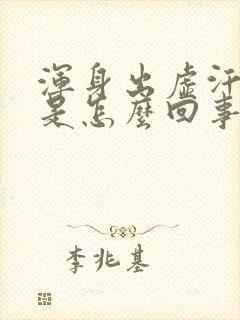 渾身出虛汗
是怎麼回事
李兆基